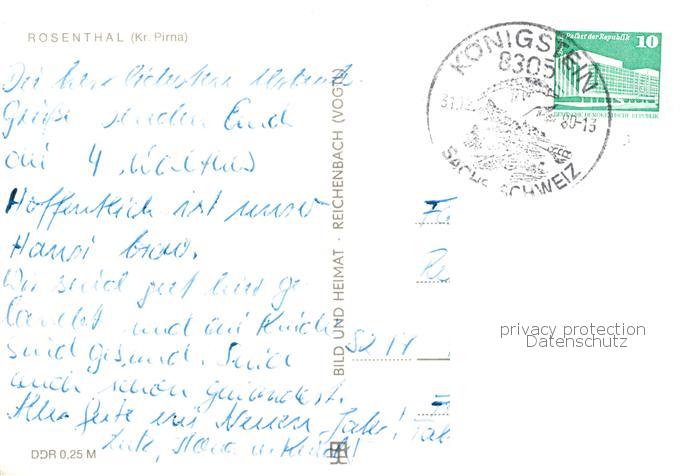 ROSENTHAL (Kr. Pirna)
Die herzlichsten Urlaubs-
Grüße senden Euch
die 4
Hoffentlich ist unser
Hansi brav.
Wir sind gut hier ge
landet und die Kinder
sind gesund. Seid
auch schön
Alles Gute im Neuen Jahr!
DDR 0,25 M
BILD UND HEIMAT · REICHENBACH (VOGTL)
KÖNIGSTEIN
8305
80-13
SÄCHS. SCHWEIZ
Palast der Republik
10
DEUTSCHE DEMOKRATISCHE REPUBLIK
privacy protection
Datenschutz